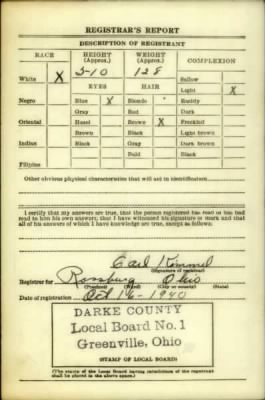 REGISTRAR'S REPORT
DESCRIPTION OF REGISTRANT
RACE HEIGHT (Approx.) WEIGHT (Approx.) COMPLEXION
5-10 128
White X Sallow
EYES HAIR Light X
Negro Blue X Blonde Ruddy
Gray Red Dark
Oriental Hazel Brown X Freckled
Brown Black Light brown
Indian Black Gray Dark brown
Bald Black
Filipino
Other obvious physical characteristics that will aid in identification
I certify that my answers are true; that the person registered has read or has had
read to him his own answers; that I have witnessed his signature or mark and that
all of his answers of which I have knowledge are true, except as follows:
Earl Kimmel
(Signature of registrar)
Registrar for Rossburg Ohio
(Precinct) (Ward) (City or county) (State)
Date of registration Oct 16 - 1940
DARKE COUNTY
Local Board No. 1
Greenville, Ohio
(STAMP OF LOCAL BOARD)
(The stamp of the Local Board having jurisdiction of the registrant
shall be placed in the above space.)